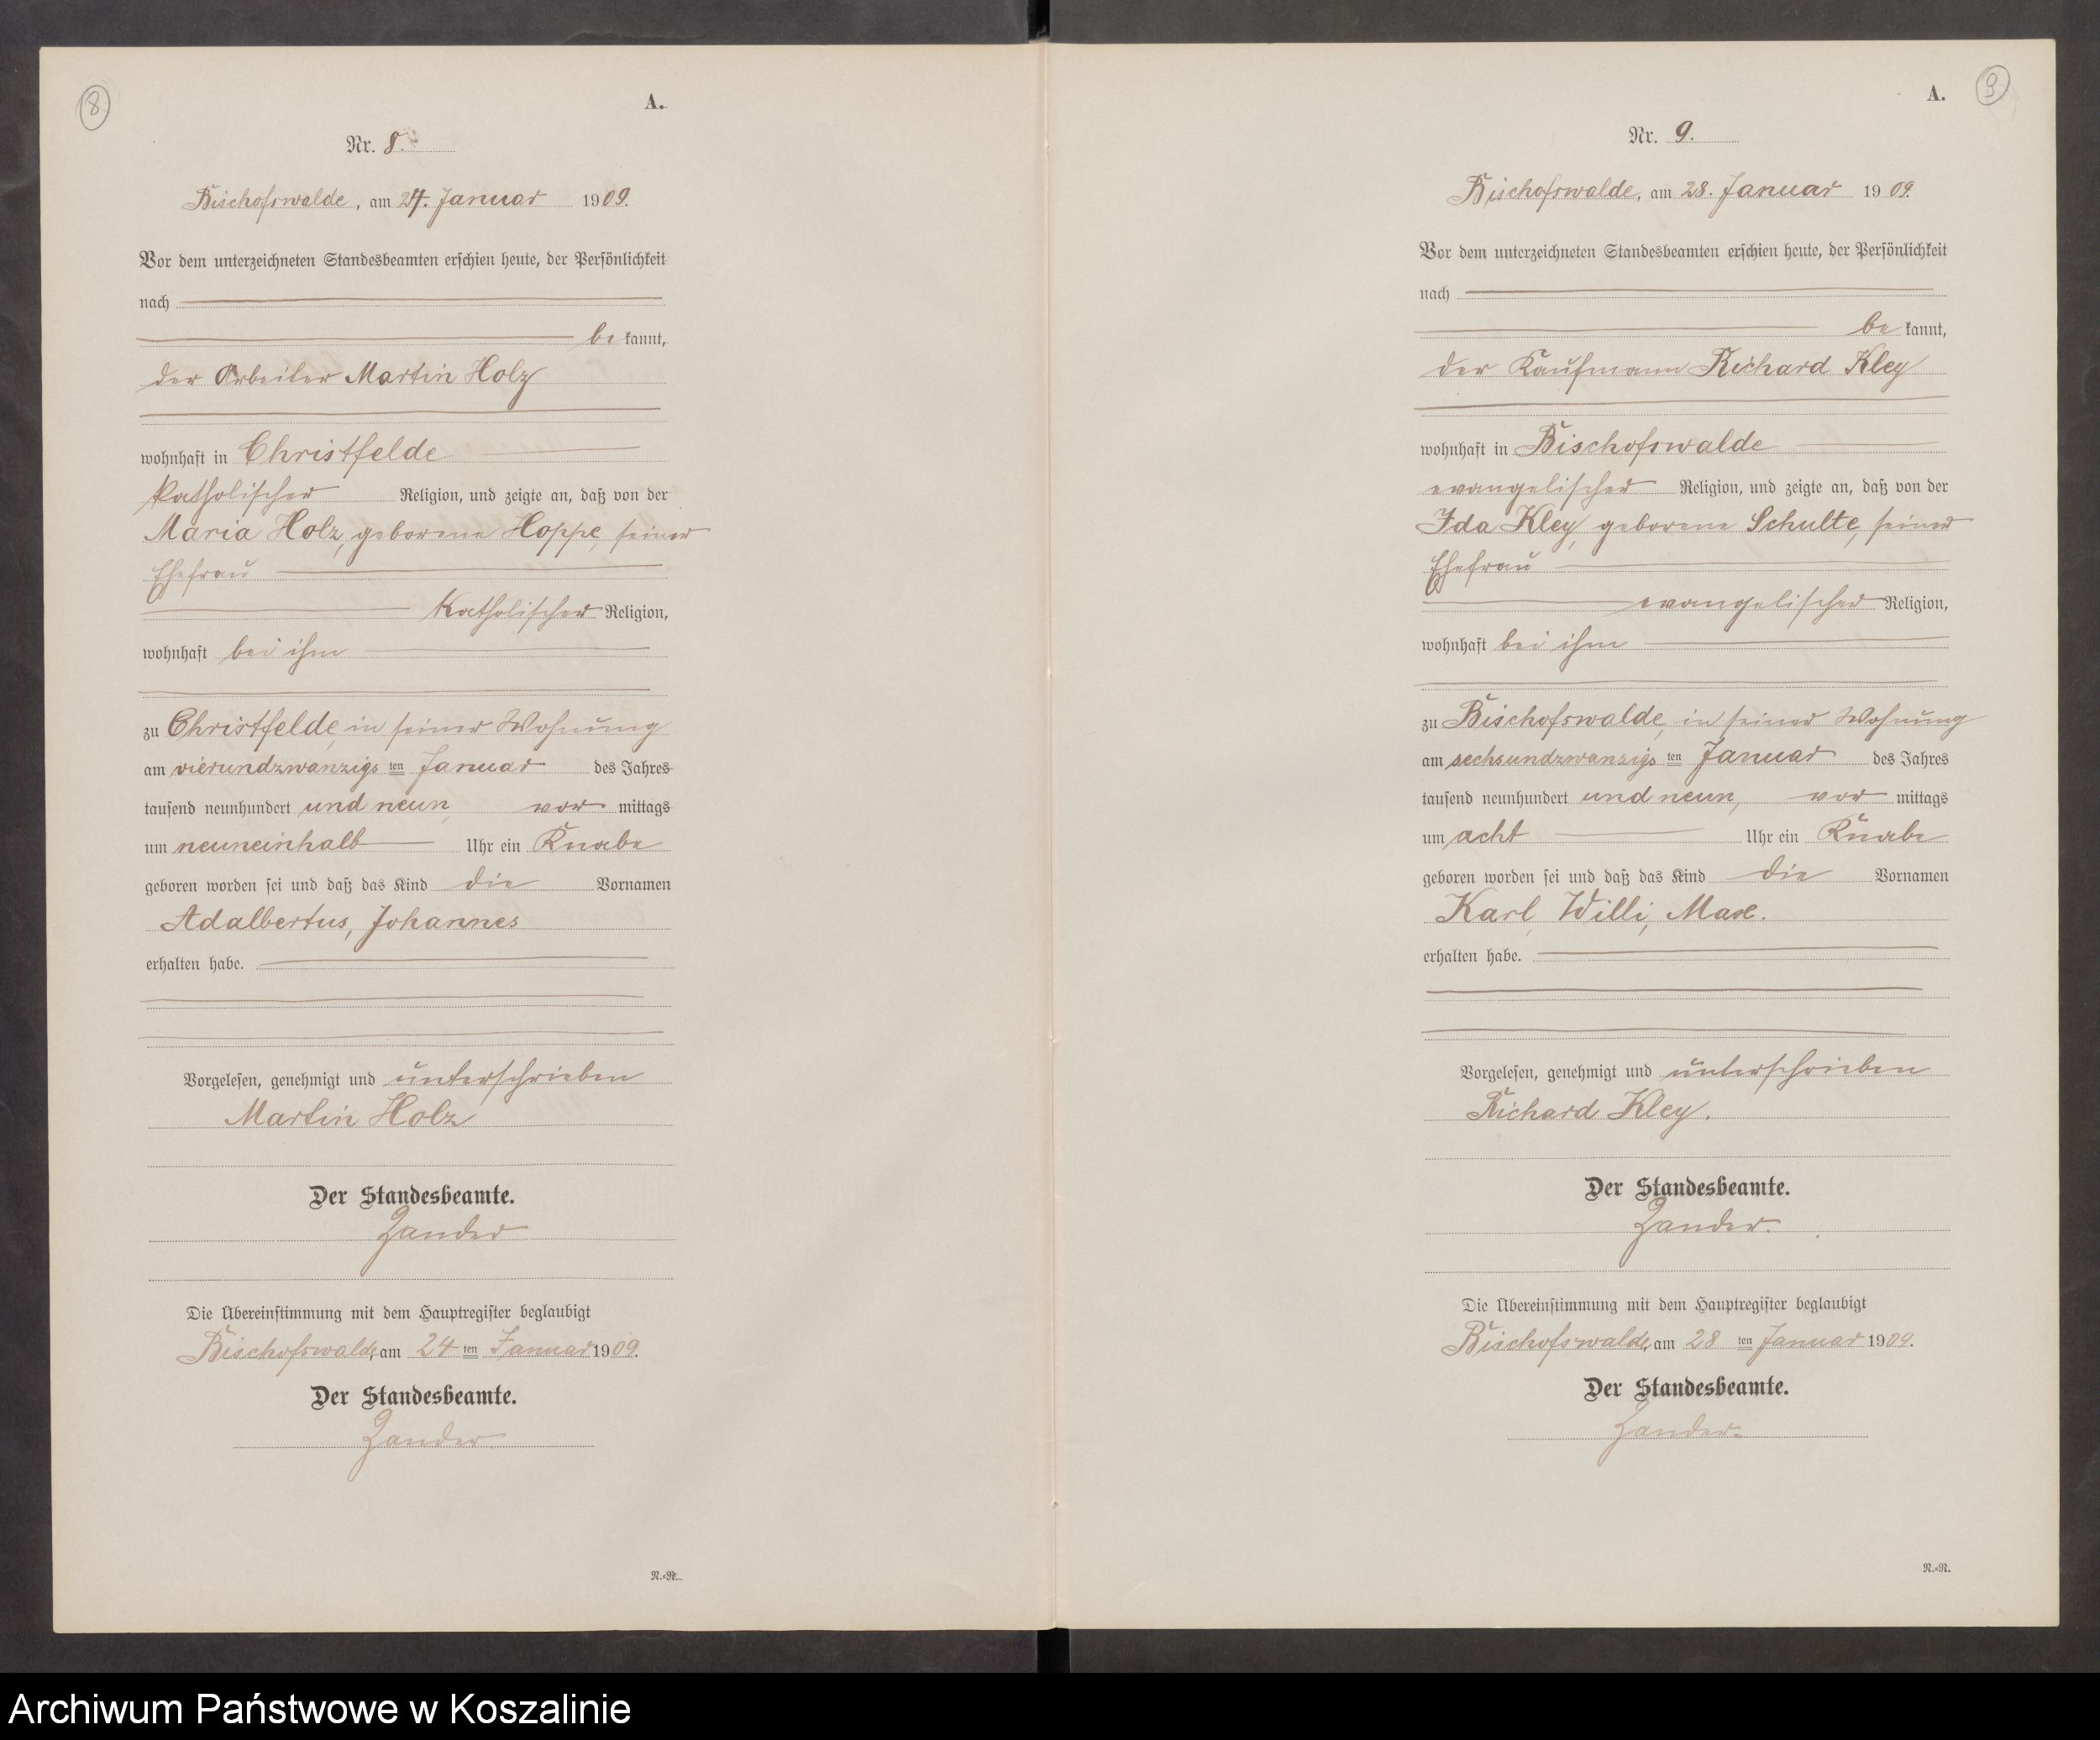 8
A.
Nr. 8.
Bischofswalde, am 24. Januar 1909.
Vor dem unterzeichneten Standesbeamten erschien heute, der Persönlichkeit
nach
bekannt,
der Arbeiter Martin Holz
wohnhaft in Christfelde
katholischer Religion, und zeigte an, daß von der
Maria Holz, geborene Hoppe, seiner
Ehefrau
Katholischer Religion,
wohnhaft bei ihm
zu Christfelde, in seiner Wohnung
am vierundzwanzigsten Januar des Jahres
tausend neunhundert und neun, vor mittags
um neuneinhalb Uhr ein Knabe
geboren worden sei und daß das Kind die Vornamen
Adalbertus, Johannes
erhalten habe.
Vorgelesen, genehmigt und unterschrieben
Martin Holz
Der Standesbeamte.
Zander
Die Übereinstimmung mit dem Hauptregister beglaubigt
Bischofswalde, am 24 ten Januar 1909.
Der Standesbeamte.
Zander.
A.
9
Nr. 9.
Bischofswalde, am 28. Januar 1909.
Vor dem unterzeichneten Standesbeamten erschien heute, der Persönlichkeit
nach
bekannt,
der Kaufmann Richard Kley
wohnhaft in Bischofswalde
evangelischer Religion, und zeigte an, daß von der
Ida Kley, geborene Schulte, seiner
Ehefrau
evangelischer Religion,
wohnhaft bei ihm
zu Bischofswalde, in seiner Wohnung
am sechsundzwanzigsten Januar des Jahres
tausend neunhundert und neun, vor mittags
um acht Uhr ein Knabe
geboren worden sei und daß das Kind die Vornamen
Karl, Willi, Max.
erhalten habe.
Vorgelesen, genehmigt und unterschrieben
Richard Kley.
Der Standesbeamte.
Zander.
Die Übereinstimmung mit dem Hauptregister beglaubigt
Bischofswalde, am 28 ten Januar 1909.
Der Standesbeamte.
Zander.
N.=N.
Archiwum Państwowe w Koszalinie